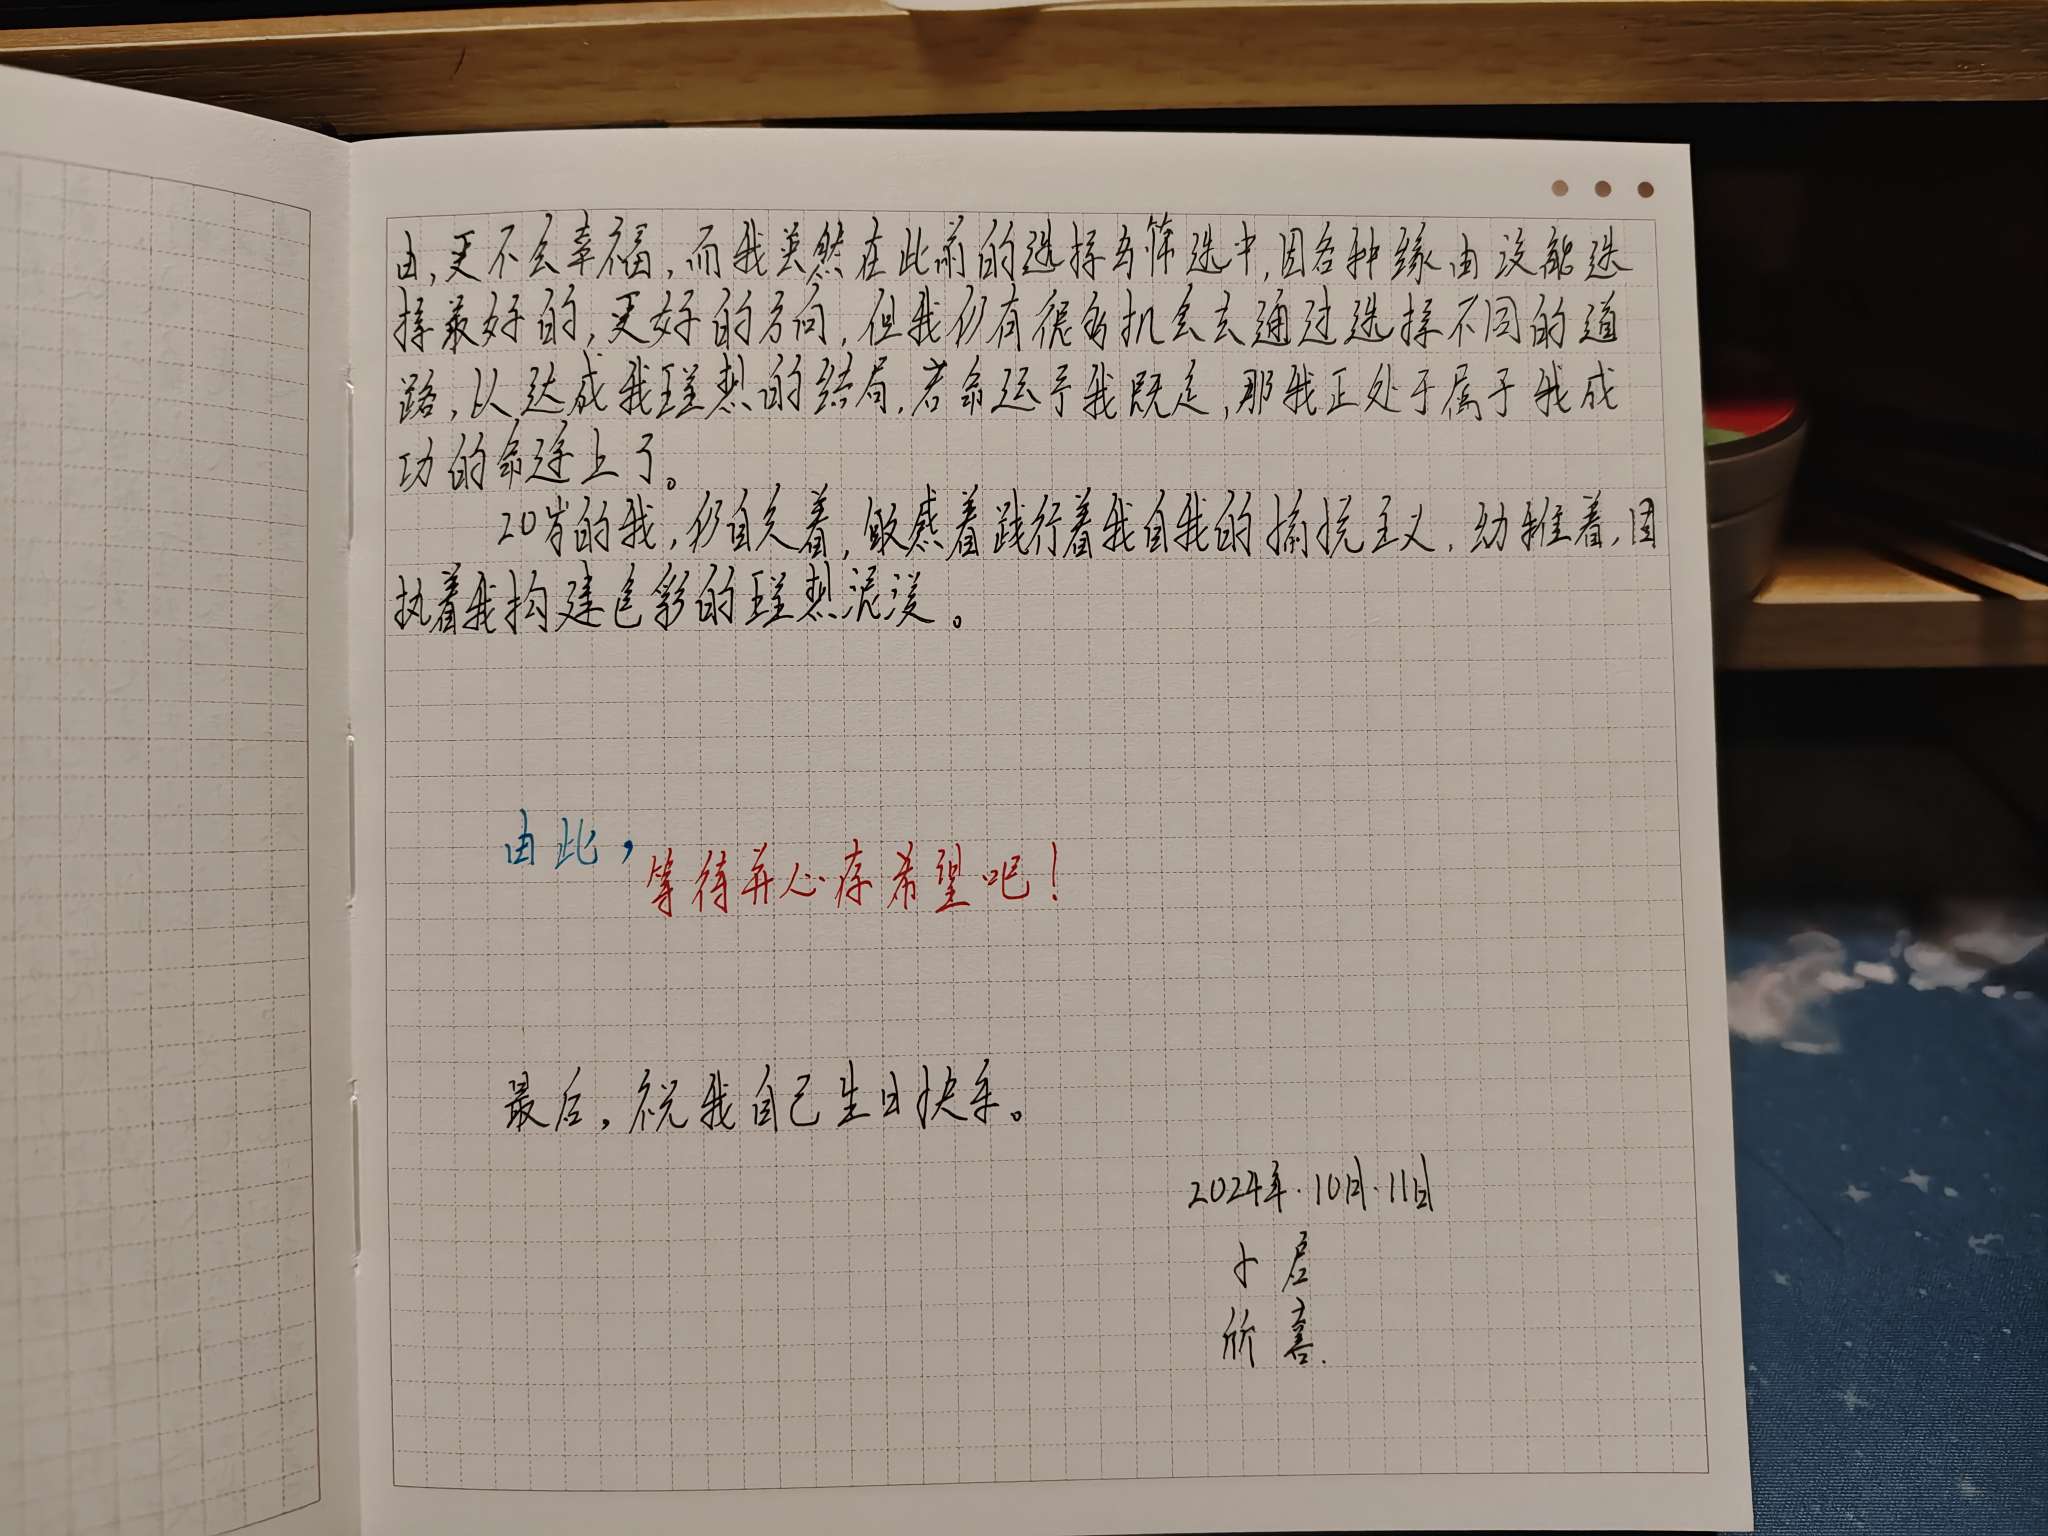 由,更不会幸福,而我虽然在此前的选择与筛选中,因各种缘由没能选
择最好的,更好的方向,但我仍有很多机会去通过选择不同的道
路,以达成我理想的结局,若命运于我既定,那我正处于属于我成
功的命途上了。
20岁的我,仍自关着,敏感着践行着我自我的捕捉主义,幼稚着,固
执着我构建色彩的理想浪漫。
由此,
等待并心存希望吧!
最后,祝我自己生日快乐。
2024年·10月·11日
卜居
欣喜.